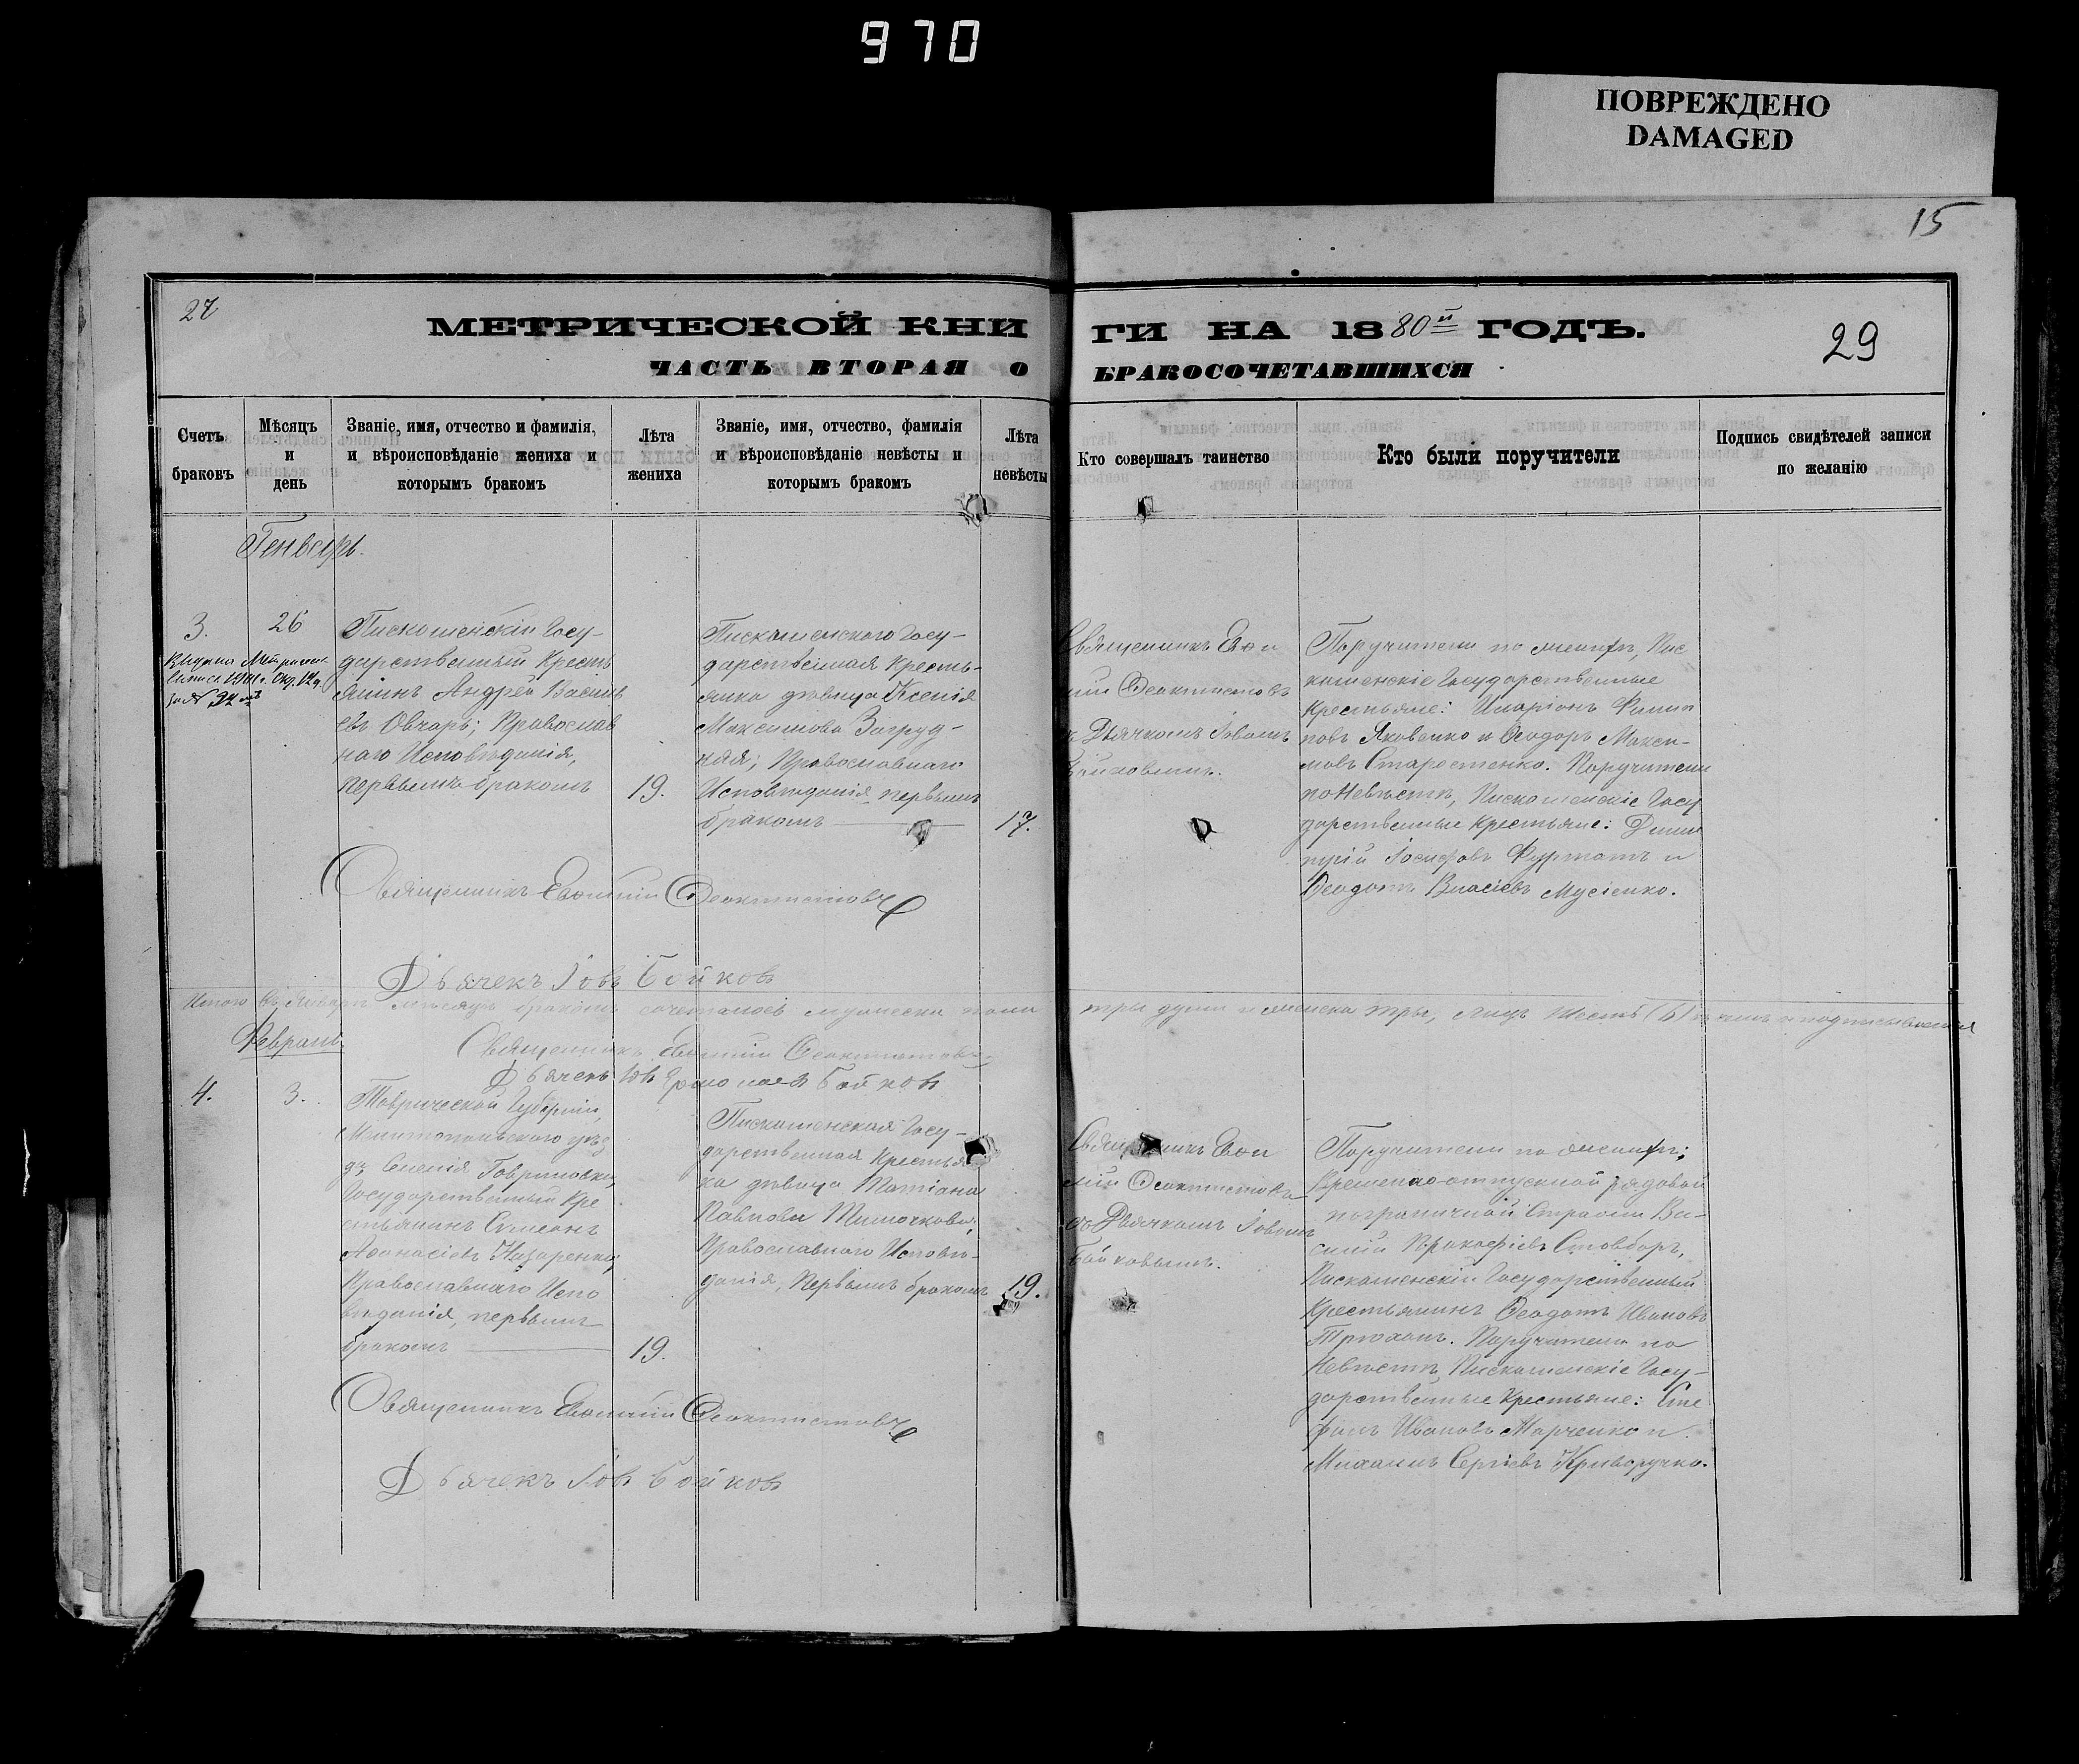 970
ПОВРЕЖДЕНО
DAMAGED
15
27
МЕТРИЧЕСКОЙ КНИ
ГИ НА 1880й ГОДЪ.
29
ЧАСТЬ ВТОРАЯ О
БРАКОСОЧЕТАВШИХСЯ
Счетъ браковъ
Мѣсяцъ и день
Званіе, имя, отчество и фамилія,
и вѣроисповѣданіе жениха и
которымъ бракомъ
Лѣта
жениха
Званіе, имя, отчество, фамилія
и вѣроисповѣданіе невѣсты и
которымъ бракомъ
Лѣта
невѣсты
Кто совершалъ таинство
Кто были поручители
Подпись свидѣтелей записи
по желанію
Генварь.
3.
26
Пискошенскій Госу-
дарственный Кресть
янинъ Андрей Василь
евъ Овчарь; Православ
наго Исповѣданія,
первымъ бракомъ
19.
Пискошенского Госу-
дарственная Кресть-
янка дѣвица Ксенія
Максимова Загруд-
няя; Православнаго
Исповѣданія первымъ
бракомъ
17.
Священникъ Евѳи
мій Ѳеоктистовъ
съ Дьячкомъ Іовомъ
Бойковымъ.
Поручители по женихѣ, Пис
кошенскіе Государственные
Крестьяне: Иларіонъ Филип
повъ Яковенко и Ѳеодоръ Макси-
мовъ Старостенко. Поручители
по Невѣстѣ, Пискошенскіе Госу
дарственные Крестьяне: Дими
трій Іосифовъ Фурматъ и
Ѳеодотъ Власіевъ Мусіенко.
Священникъ Евѳимій Ѳеоктистовъ
Дьячекъ Іовъ Бойковъ
Итого въ Январѣ мѣсяцѣ бракомъ сочеталось мужеска пола
три души и женска три, лицъ шесть (6) въ чемъ и подписываемся
Февраль
Священникъ Евѳимій Ѳеоктистовъ
Дьячекъ Іовъ Бойковъ
4.
3.
Таврической Губерніи,
Мелитопольскаго уѣз
да Селенія Гавриловки,
Государственный Кре
стьянинъ Симеонъ
Аѳанасіевъ Назаренко;
Православнаго Испо
вѣданія, первымъ
бракомъ
19.
Пискошенская Госу-
дарственная Крестьян
ка дѣвица Татіана
Павлова Тимочкова;
Православнаго Исповѣ-
данія, Первымъ бракомъ
19.
Священникъ Евѳи
мій Ѳеоктистовъ
съ Дьячкомъ Іовомъ
Бойковымъ.
Поручители по женихѣ;
Временно-отпускной рядовой
пограничной Стражи Ва-
силій Прокофіевъ Стовборъ,
Пискошенскій Государственный
Крестьянинъ Ѳеодотъ Ивановъ
Трюханъ. Поручители по
Невѣстѣ, Пискошенскіе Госу-
дарственные Крестьяне: Сте
фанъ Ивановъ Марченко и
Михаилъ Сергіевъ Криворучко.
Священникъ Евѳимій Ѳеоктистовъ
Дьячекъ Іовъ Бойковъ